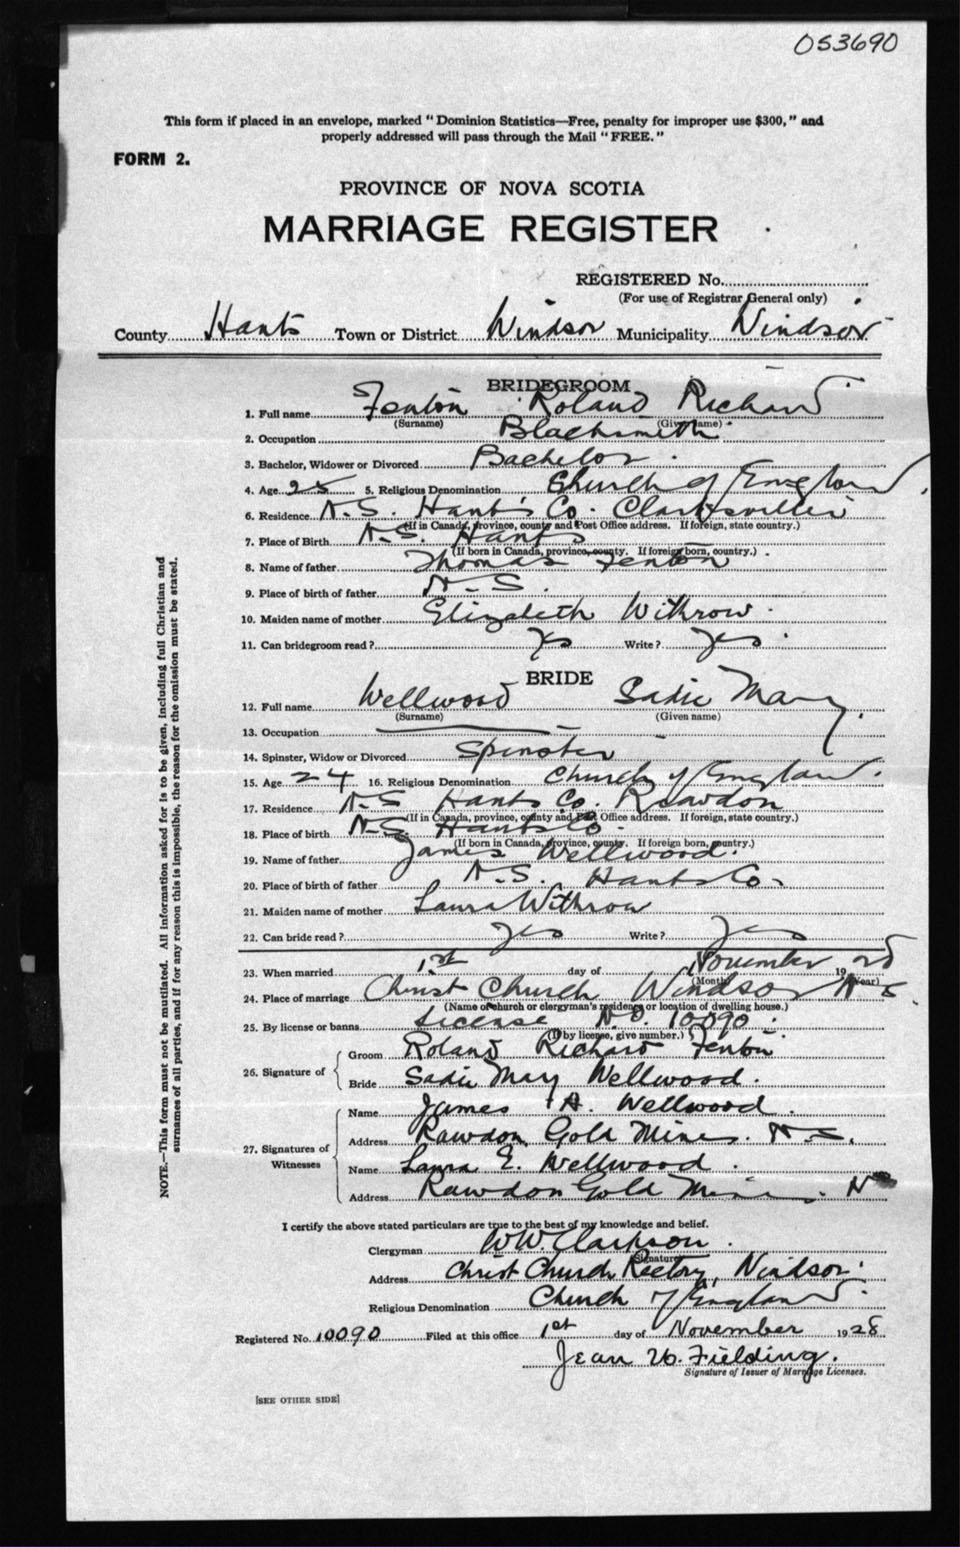 053690
This form if placed in an envelope, marked "Dominion Statistics—Free, penalty for improper use $300," and
properly addressed will pass through the Mail "FREE."
FORM 2.
PROVINCE OF NOVA SCOTIA
MARRIAGE REGISTER
REGISTERED No.
(For use of Registrar General only)
County Hants Town or District Windsor Municipality Windsor
BRIDEGROOM
1. Full name Fenton Roland Richard
(Surname) (Given name)
2. Occupation Blacksmith
3. Bachelor, Widower or Divorced Bachelor
4. Age 25 5. Religious Denomination Church of England
6. Residence N.S. Hants Co. Clarksville
(If in Canada, province, county and Post Office address. If foreign, state country.)
7. Place of Birth N.S. Hants
(If born in Canada, province, county. If foreign born, country.)
8. Name of father Thomas Fenton
9. Place of birth of father N.S.
10. Maiden name of mother Elizabeth Withrow
11. Can bridegroom read? Yes Write? Yes
BRIDE
12. Full name Wellwood Sadie May
(Surname) (Given name)
13. Occupation
14. Spinster, Widow or Divorced Spinster
15. Age 24 16. Religious Denomination Church of England
17. Residence N.S. Hants Co. Rawdon
(If in Canada, province, county and Post Office address. If foreign, state country.)
18. Place of birth N.S. Hants Co.
(If born in Canada, province, county. If foreign born, country.)
19. Name of father James Wellwood
20. Place of birth of father N.S. Hants Co.
21. Maiden name of mother Laura Withrow
22. Can bride read? Yes Write? Yes
23. When married 1st day of November 1928
(Month) (Year)
24. Place of marriage Christ Church Windsor N.S.
(Name of church or clergyman's residence or location of dwelling house.)
25. By license or banns License No. 10090
(If by license, give number.)
26. Signature of Groom Roland Richard Fenton
Bride Sadie May Wellwood.
27. Signatures of Witnesses Name James A. Wellwood.
Address Rawdon Gold Mines. N.S.
Name Laura E. Wellwood.
Address Rawdon Gold Mines. N
I certify the above stated particulars are true to the best of my knowledge and belief.
Clergyman W.W. Clarkson.
(Signature)
Address Christ Church Rectory, Windsor.
Religious Denomination Church of England.
Registered No. 10090 Filed at this office 1st day of November 1928
Jean W. Fielding.
Signature of Issuer of Marriage Licenses.
[SEE OTHER SIDE]
NOTE.—This form must not be mutilated. All information asked for is to be given, including full Christian and
surnames of all parties, and if for any reason this is impossible, the reason for the omission must be stated.